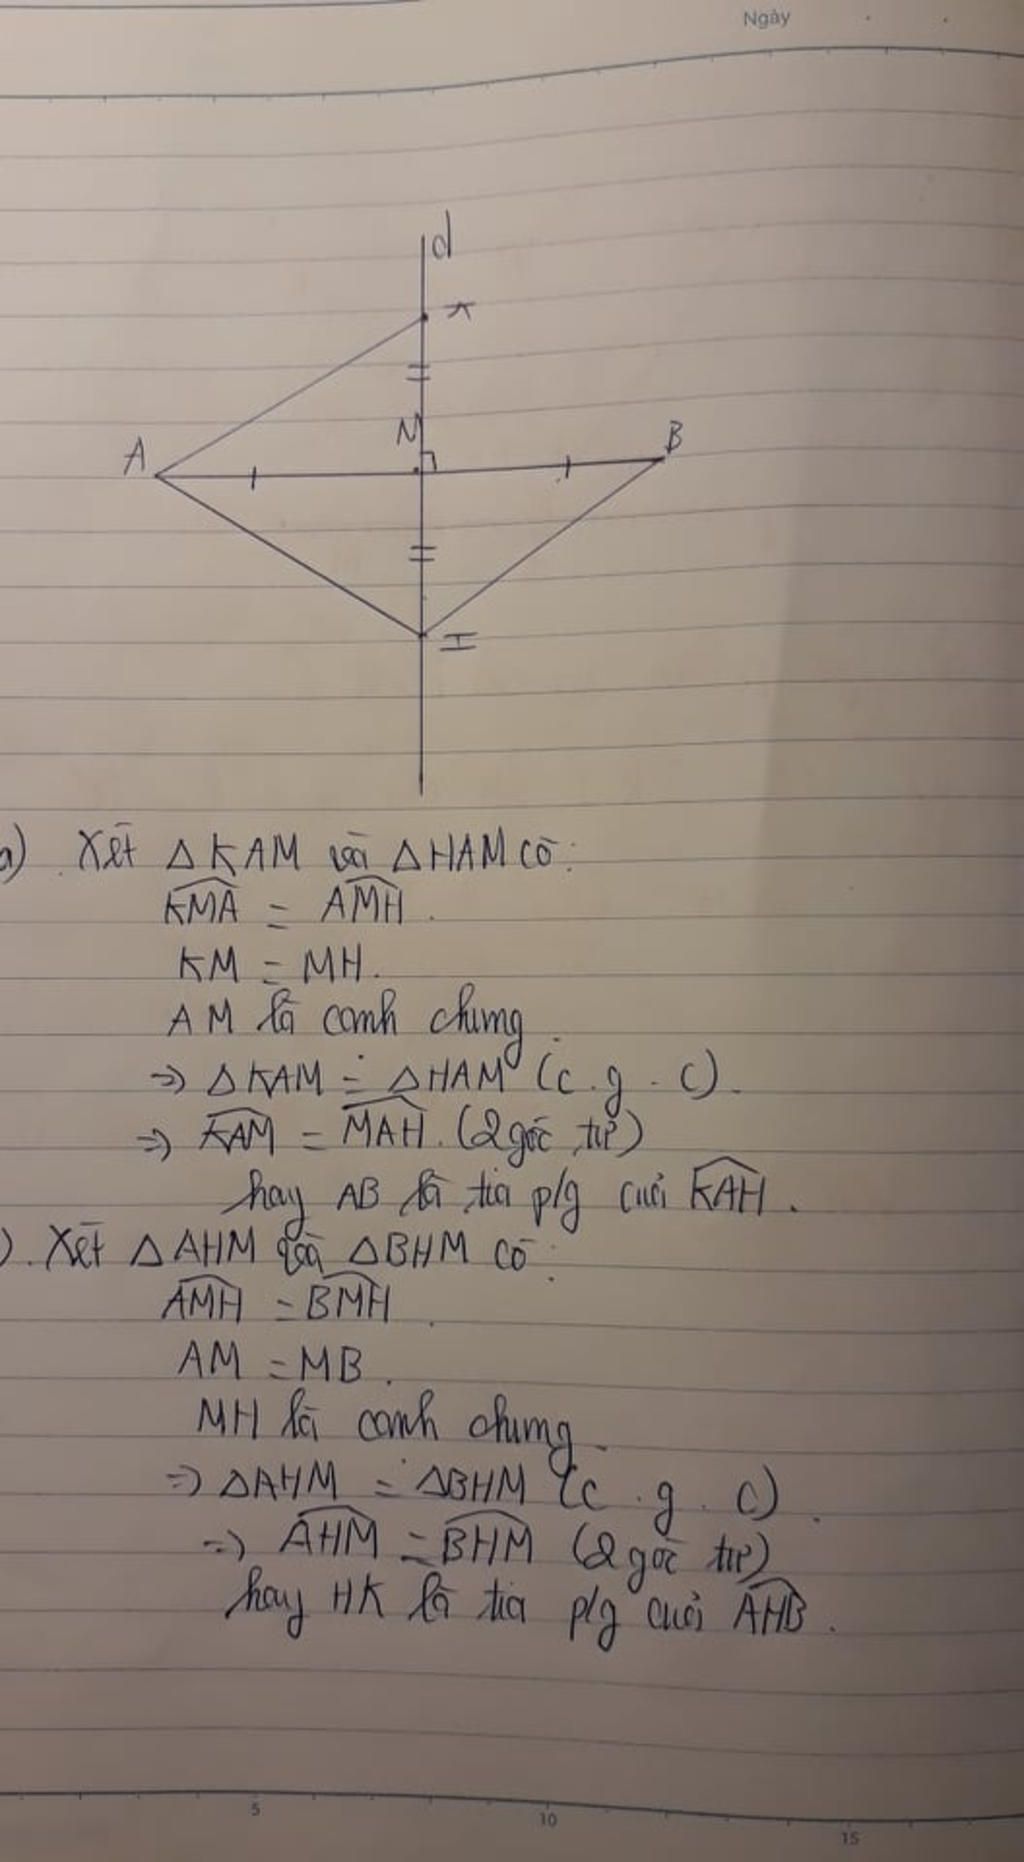 Ngày
d
K
M
A
B
H
a) Xét △KAM và △HAM có:
KMA = AMH.
KM = MH.
AM là cạnh chung.
=> △KAM = △HAM (c.g.c).
=> KAM = MAH. (2 góc tư)
hay AB là tia p/g của KAH.
). Xét △AHM và △BHM có:
AMH = BMH.
AM = MB.
MH là cạnh chung.
=> △AHM = △BHM (c.g.c).
=> AHM = BHM (2 góc tư)
hay HK là tia p/g của AHB.
5
10
15